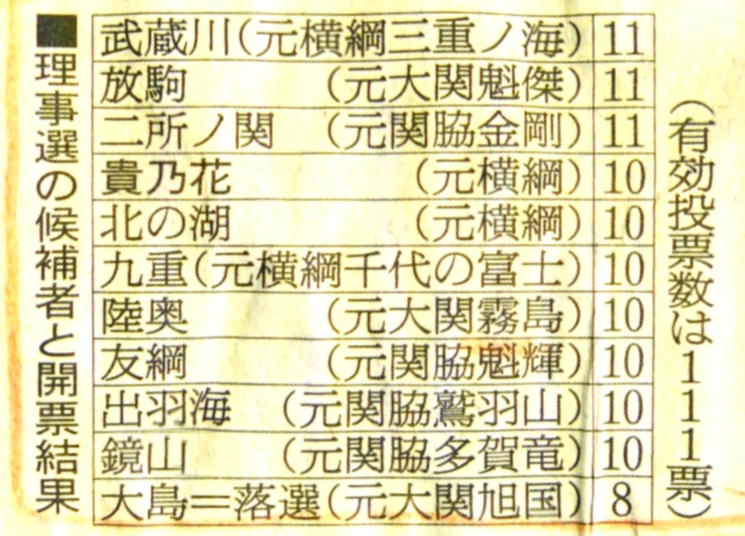 ■理事選の候補者と開票結果
武蔵川(元横綱三重ノ海) 11
放駒 (元大関魁傑) 11
二所ノ関 (元関脇金剛) 11
貴乃花 (元横綱) 10
北の湖 (元横綱) 10
九重(元横綱千代の富士) 10
陸奥 (元大関霧島) 10
友綱 (元関脇魁輝) 10
出羽海 (元関脇鷲羽山) 10
鏡山 (元関脇多賀竜) 10
大島=落選(元大関旭国) 8
(有効投票数は111票)